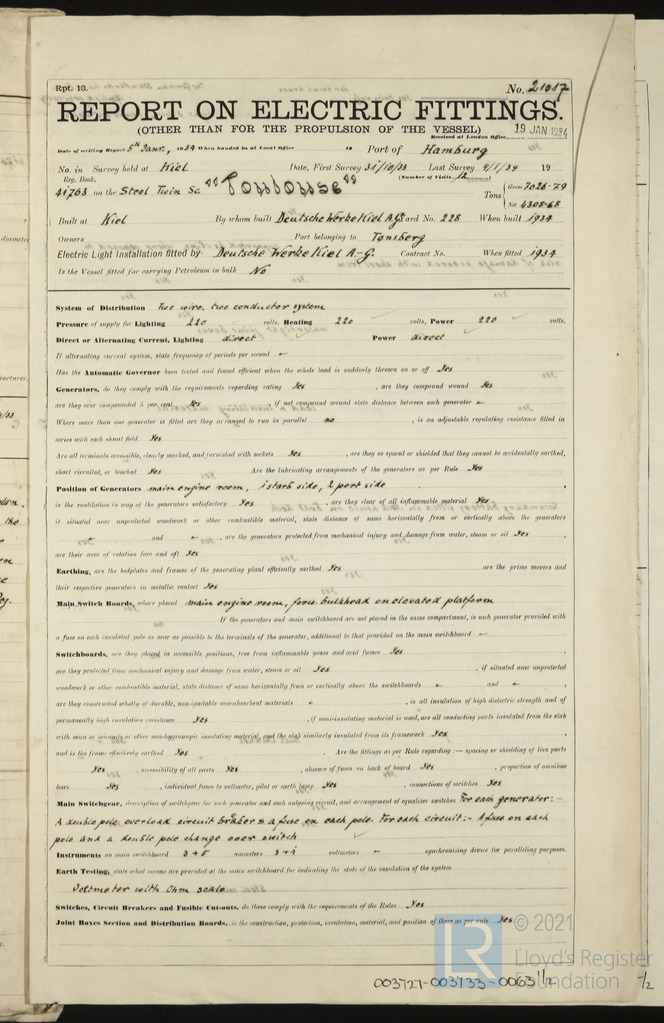 Rpt. 13.
No. 21017
REPORT ON ELECTRIC FITTINGS.
(OTHER THAN FOR THE PROPULSION OF THE VESSEL)
Received at London Office 19 JAN 1934
Date of writing Report 5th Janr., 1934 When handed in at Local Office 19 Port of Hamburg
No. in Survey held at Kiel Date, First Survey 31/10/33 Last Survey 4/1/34 19
Reg. Book. (Number of Visits 12
41763 on the Steel Twin Sc. "Toulouse" Tons Gross 7026.79
Net 4308.68
Built at Kiel By whom built Deutsche Werke Kiel A.G. Yard No. 228 When built 1934
Owners Port belonging to Tönsberg
Electric Light Installation fitted by Deutsche Werke Kiel A.-G. Contract No. When fitted 1934
Is the Vessel fitted for carrying Petroleum in bulk No
System of Distribution two wire, two conductor system
Pressure of supply for Lighting 220 volts, Heating 220 volts, Power 220 volts.
Direct or Alternating Current, Lighting direct Power direct
If alternating current system, state frequency of periods per second -
Has the Automatic Governor been tested and found efficient when the whole load is suddenly thrown on or off Yes
Generators, do they comply with the requirements regarding rating Yes , are they compound wound Yes
are they over compounded 5 per cent. Yes , if not compound wound state distance between each generator -
Where more than one generator is fitted are they arranged to run in parallel no , is an adjustable regulating resistance fitted in
series with each shunt field Yes
Are all terminals accessible, clearly marked, and furnished with sockets Yes , are they so spaced or shielded that they cannot be accidentally earthed,
short circuited, or touched Yes Are the lubricating arrangements of the generators as per Rule Yes
Position of Generators main engine room, 1 starb side, 2 port side
is the ventilation in way of the generators satisfactory Yes , are they clear of all inflammable material Yes
if situated near unprotected woodwork or other combustible material, state distance of same horizontally from or vertically above the generators
- and - , are the generators protected from mechanical injury and damage from water, steam or oil Yes
are their axes of rotation fore and aft Yes
Earthing, are the bedplates and frames of the generating plant efficiently earthed Yes are the prime movers and
their respective generators in metallic contact Yes
Main Switch Boards, where placed main engine room, forw. bulkhead on elevated platform
If the generators and main switchboard are not placed in the same compartment, is each generator provided with
a fuse on each insulated pole as near as possible to the terminals of the generator, additional to that provided on the main switchboard -
Switchboards, are they placed in accessible positions, free from inflammable gases and acid fumes Yes
are they protected from mechanical injury and damage from water, steam or oil Yes , if situated near unprotected
woodwork or other combustible material, state distance of same horizontally from or vertically above the switchboards - and -
are they constructed wholly of durable, non-ignitable non-absorbent materials - , is all insulation of high dielectric strength and of
permanently high insulation resistance Yes , if semi-insulating material is used, are all conducting parts insulated from the slab
with mica or micanite or other non-hygroscopic insulating material, and the slab similarly insulated from its framework Yes
and is the frame effectively earthed Yes . Are the fittings as per Rule regarding :— spacing or shielding of live parts
Yes , accessibility of all parts Yes , absence of fuses on back of board Yes , proportion of omnibus
bars Yes , individual fuses to voltmeter, pilot or earth lamp Yes , connections of switches Yes
Main Switchgear, description of switchgear for each generator and each outgoing circuit, and arrangement of equalizer switches For each generator :-
A double pole overload circuit braker & a fuse on each pole. For each circuit :- A fuse on each
pole and a double pole change over switch
Instruments on main switchboard 3+5 ammeters 3+1 voltmeters - synchronising device for paralleling purposes.
Earth Testing, state what means are provided at the main switchboard for indicating the state of the insulation of the system
Voltmeter with Ohm scale
Switches, Circuit Breakers and Fusible Cut-outs, do these comply with the requirements of the Rules Yes
Joint Boxes Section and Distribution Boards, is the construction, protection, insulation, material, and position of these as per rule Yes
© 2021
LR
Lloyd's Register
Foundation
003727-003733-0063 1/2